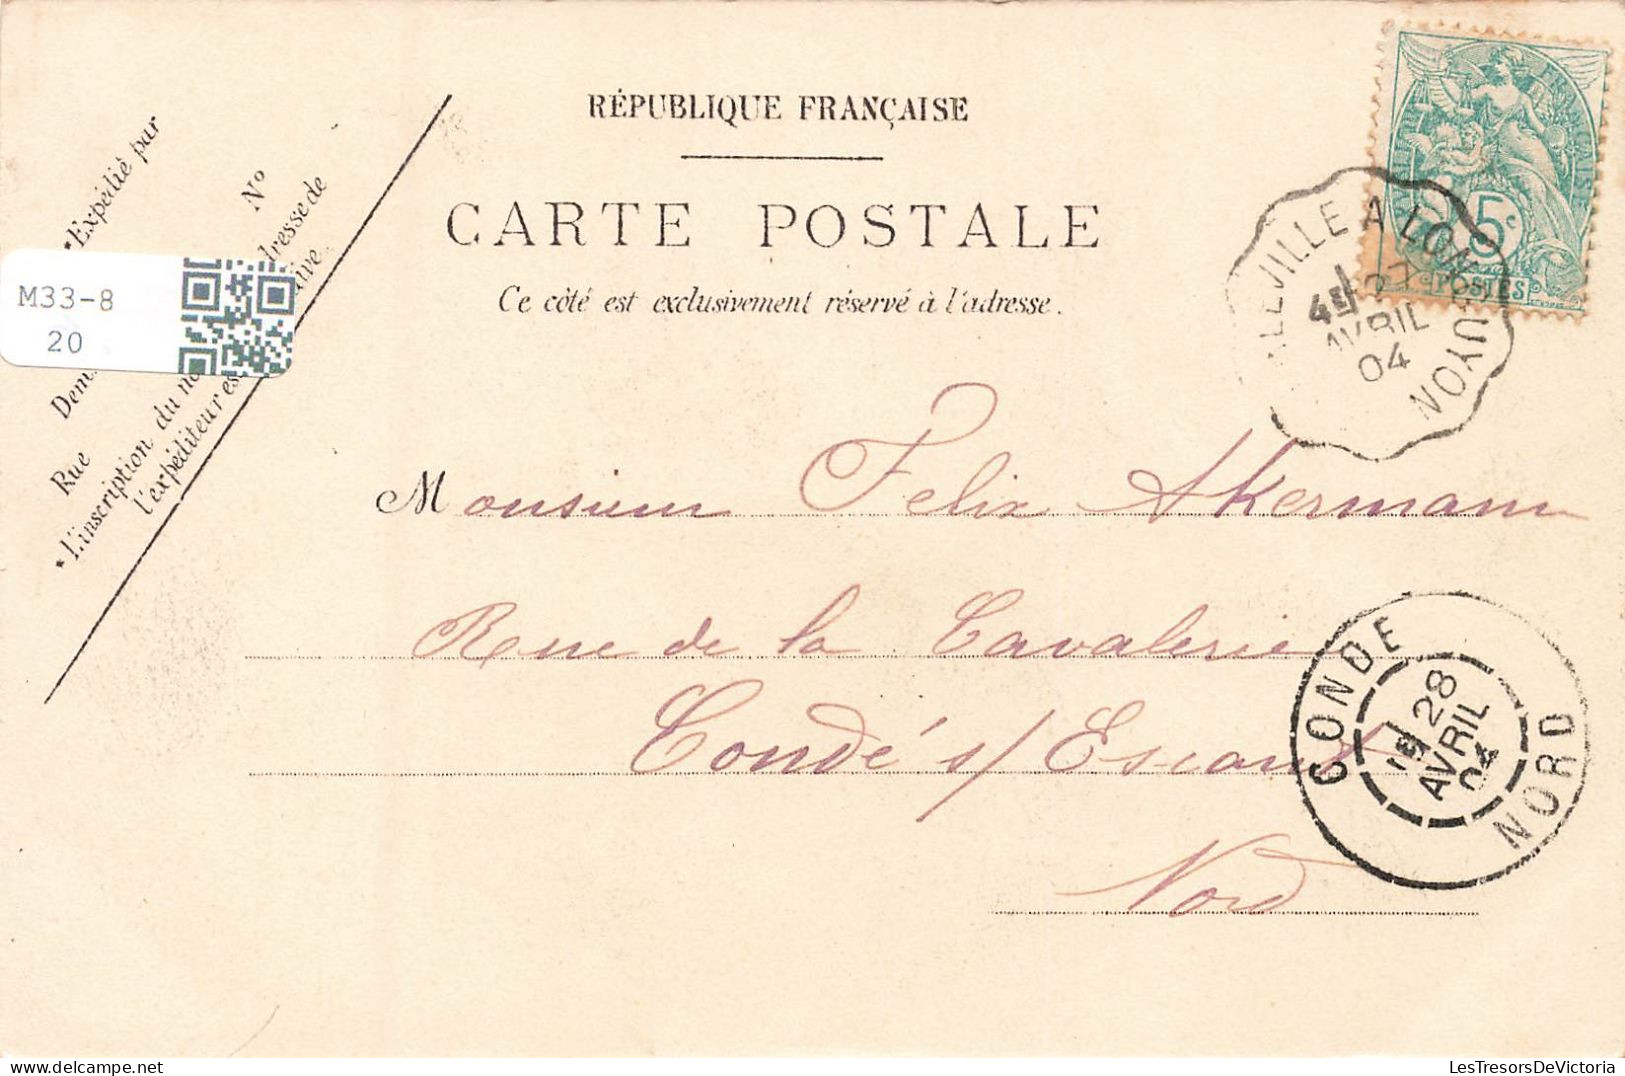 RÉPUBLIQUE FRANÇAISE
CARTE POSTALE
Ce côté est exclusivement réservé à l'adresse.
*Expédié par
Nº
Rue
Dem
*L'inscription du no dresse de
l'expéditeur es ive.
M33-8
20
FRANÇAISE
5c
POSTES
VILLE A LON UYON
4E
AVRIL
04
Monsieur Felix Akermann
Rue de la Cavalerie
Condé s/ Escaut
Nord
CONDE
NORD
28
AVRIL
04
LesTresorsDeVictoria